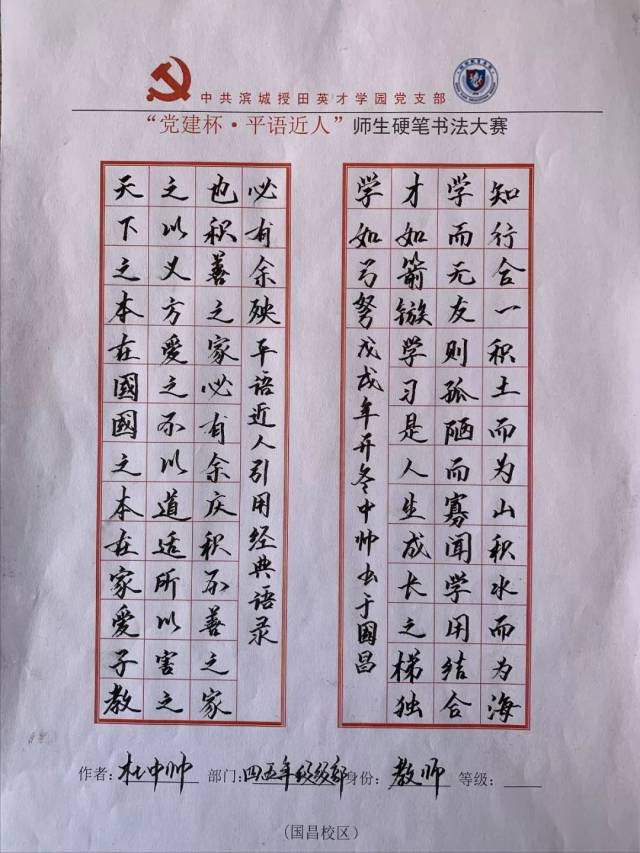 中共滨城授田英才学园党支部
“党建杯·平语近人”师生硬笔书法大赛
天下之本在國國之本在家爱子教
之以义方爱之不以道适所以害之
也积善之家必有余庆积不善之家
必有余殃平语近人引用经典语录
学如弓弩戊戌年开冬中帅书于国昌
才如箭镞学习是人生成长之梯独
学而无友则孤陋而寡闻学用结合
知行合一积土而为山积水而为海
作者：杜中帅 部门：四五年级级部 身份：教师 等级：
（国昌校区）